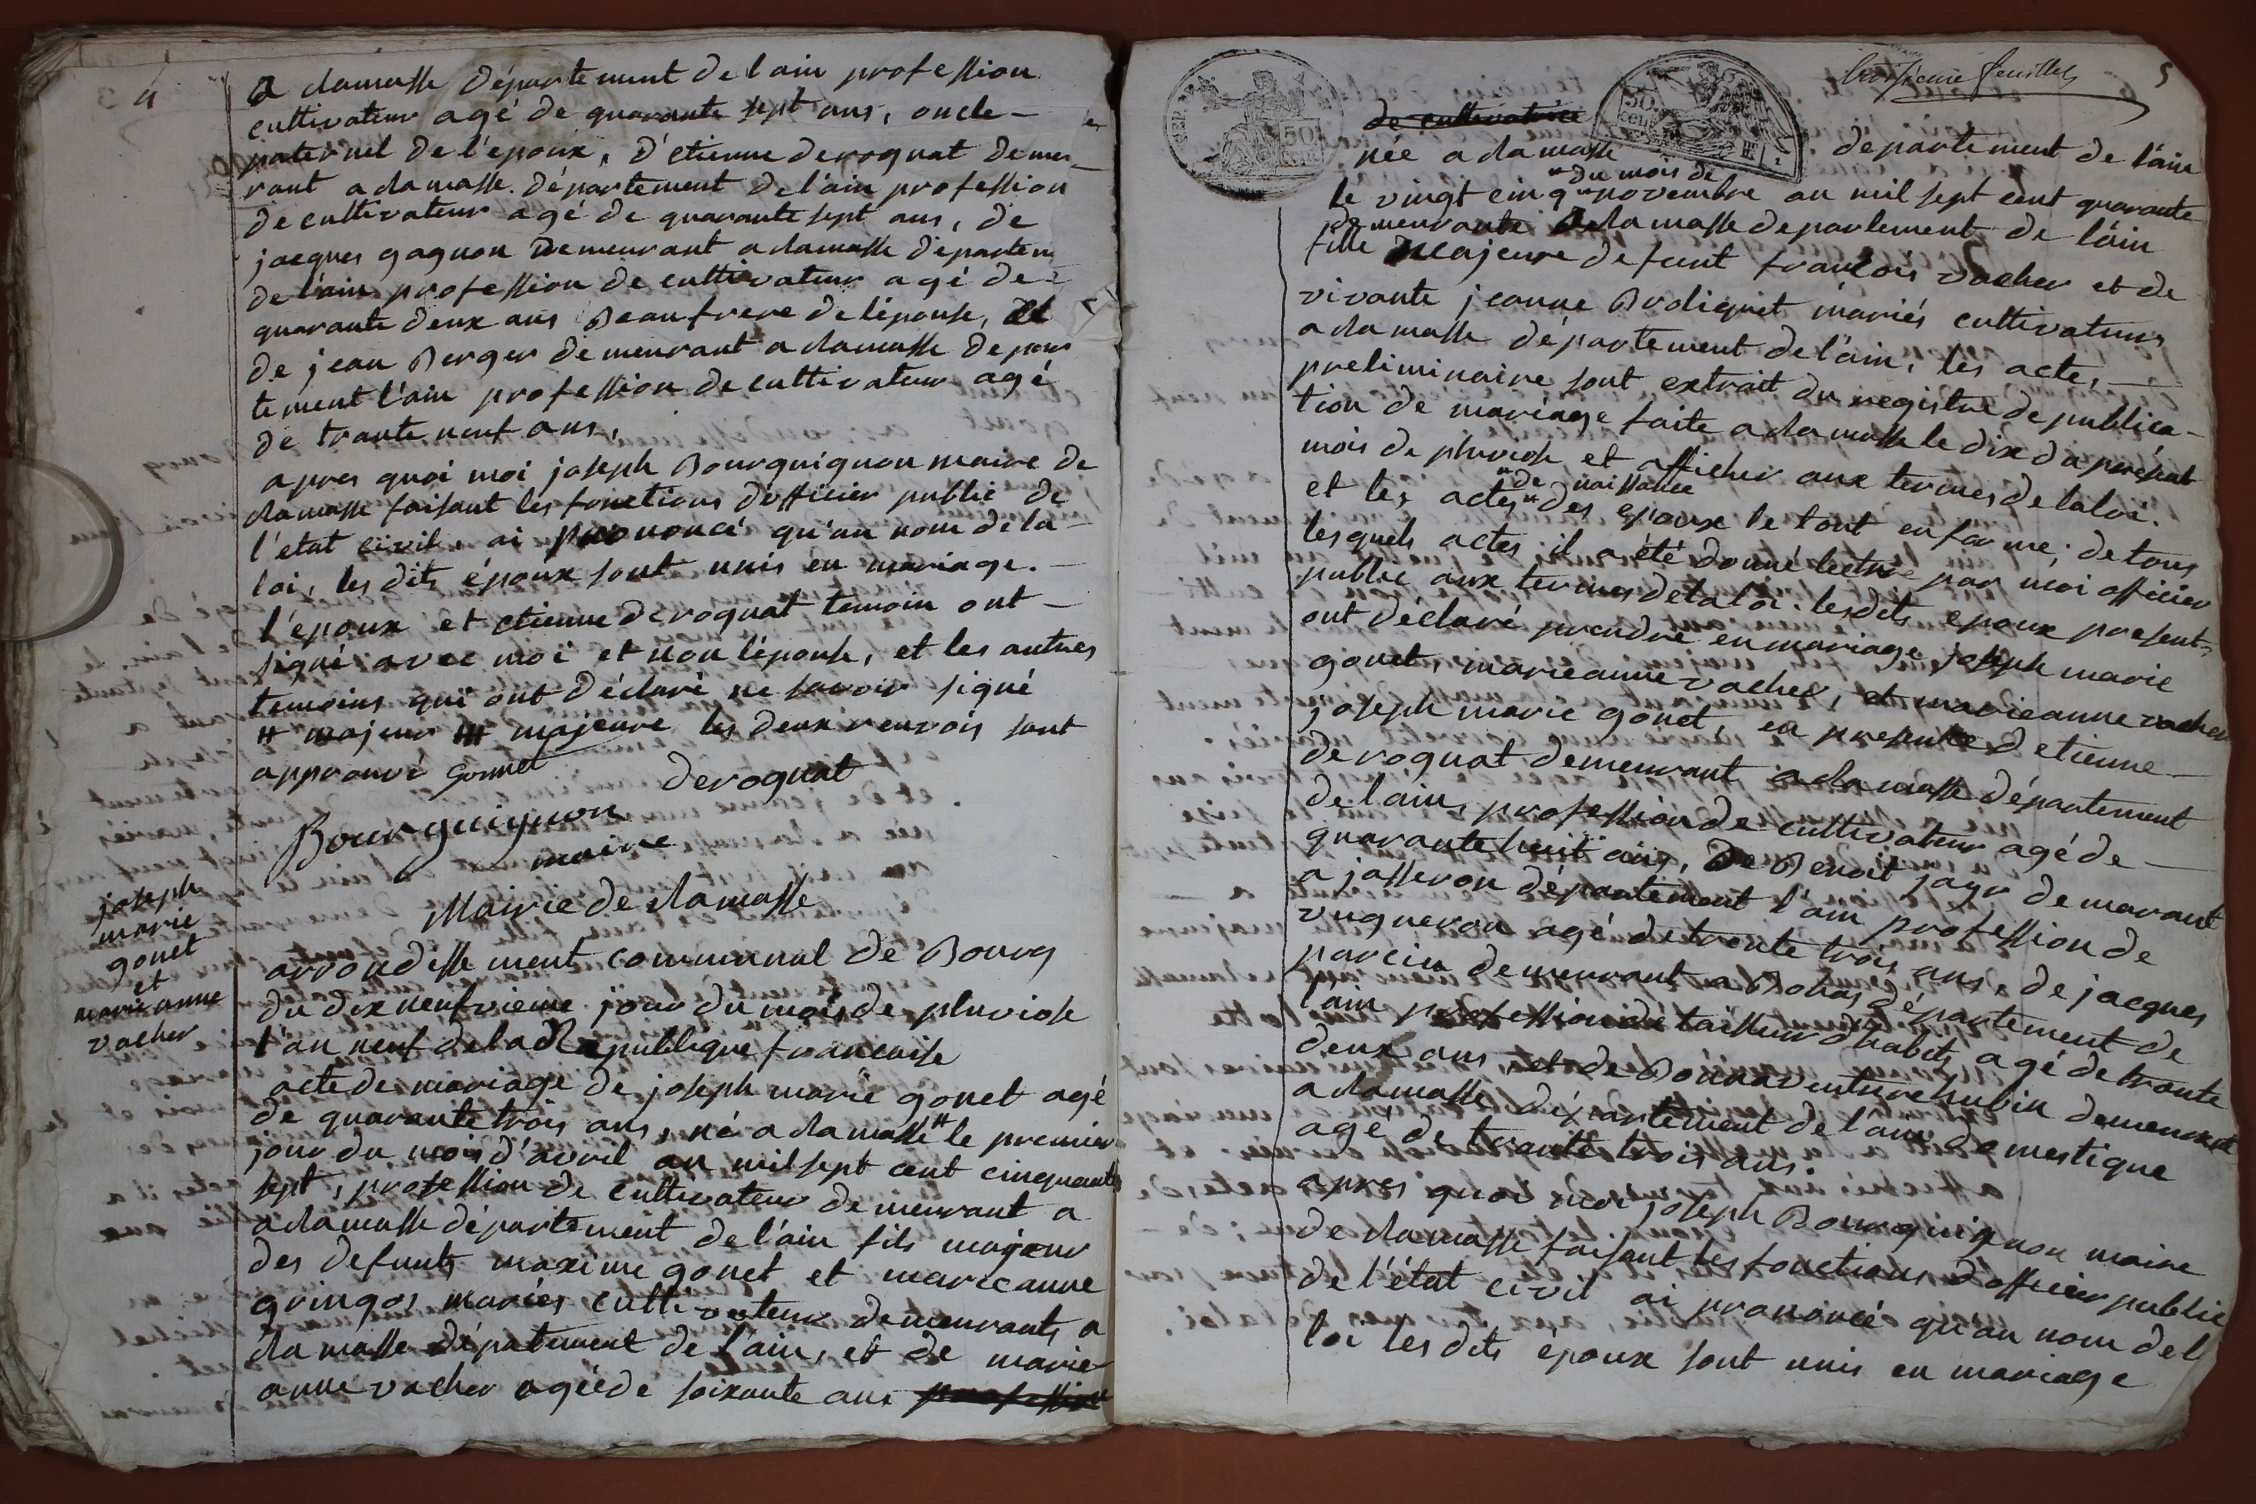 4
a clamasse département de lain profession
cultivateur agé de quarante sept ans, oncle
paternel de l'epoux, d'etienne deroquat demeu-
rant a damasse département de l'ain profession
de cultivateur agé de quarante sept ans, de
jacques gagnon demeurant a damasse départem
de l'ain profession de cultivateur agé de
quarante deux ans Beaufrere de lépouse, et
de jean Berger demeurant a damasse depar
tement l'ain profession de cultivateur agé
de trante neuf ans,
apres quoi moi joseph Bourguignon maire de
damasse faisant les fonctions d'officier public de
l'etat civil, ai prononcé qu'au nom de la
loi, les dits époux sont unis en mariage.
l'epoux et etienne deroquat temoin ont
signé avec moi et non lépouse, et les autres
temoins qui ont déclaré ne savoir signé
# majeur ## majeure les deux renvois sont
approuvé Gonnet
deroquat
Bourguignon
maire
Mairie de damasse
joseph
marie
gonet
et
marie anne
vacher
arrondissement communal de Bourg
du dix neufvieme jour du mois de pluviose
l'an neuf de la République francaise
acte de mariage de joseph marie gonet agé
de quarante trois ans, né a damasse # le premier
jour du mois d'avril an mil sept cent cinquante
sept, profession de cultivateur demeurant a
a damasse département de l'ain fils majeur
des defunts maxime gonet et marieanne
gringos mariés cultivateur demeurants a
damasse département de l'ain, et de marie
anne vacher agéede soixante ans profession
troisieme feuillet
5
de cultivatrice
née a damasse département de l'ain
le vingt cinq du mois de novembre an mil sept cent quarante
demeurante a damasse departement de l'ain
fille majeure defunt francois vacher et de
vivante jeanne Brdiquet mariés cultivateurs
a damasse département de l'ain, les actes
preliminaire sont extrait du registre de publica-
tion de mariage faite a damasse le dix du présent
mois de pluviose et afficher aux termes de la loi.
et les actes de naissance des epoux le tout en forme; de tous
lesquels actes il a été donné lecture par moi officier
public aux termes de la loi. lesdits epoux presents
ont déclaré prendre en mariage joseph marie
gonet, marieanne vacher, et marieanne vacher
joseph marie gonet, en presence d'etienne
deroquat demeurant a damasse département
de l'ain, profession de cultivateur agé de
quarante huit ans, de Benoit jayr demarant
a jasseron département l'ain profession de
vigneron agé de trente trois ans, de jacques
parcin demeurant a Bohas département de
l'ain profession de tailleur d'habits agé de trante
deux ans, et de Bonnaventure hubin demeurant
a damasse département de l'ain domestique
agé de trante trois ans.
apres quoi moi joseph Bourguignon maire
de damasse faisant les fonctions d'officier public
de l'état civil ai prononcé qu'au nom de l
loi les dits époux sont unis en mariage